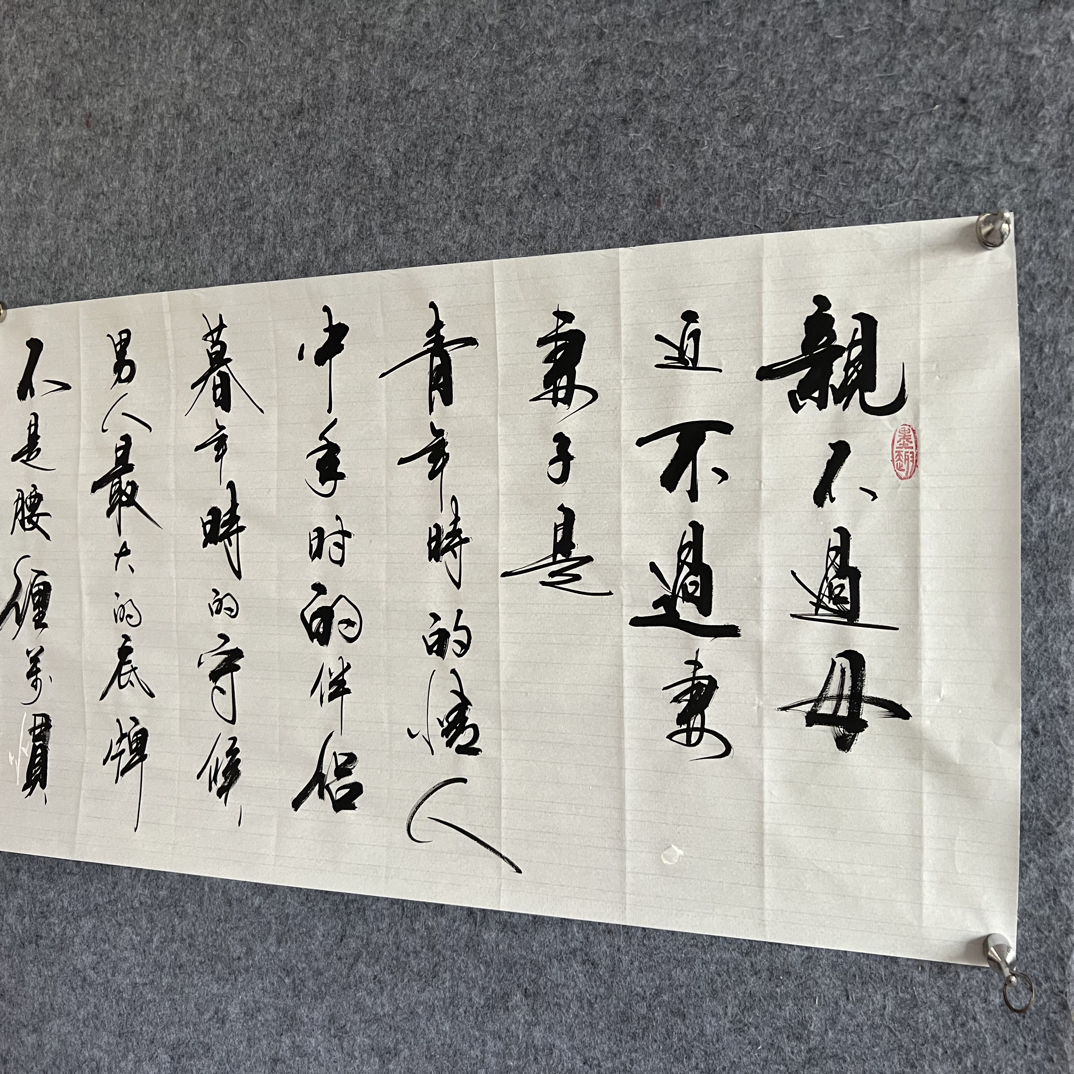 親不過母
近不過妻
妻子是
青年時的情人
中年时的伴侣
暮年時的守候
男人最大的底牌
不是腰纏萬貫
墨趣